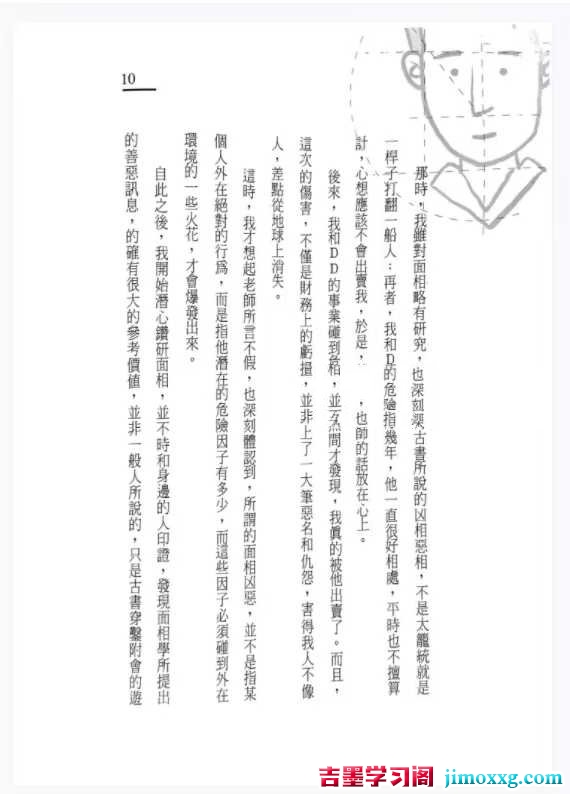 10
那時，我雖對面相略有研究，也深刻深古書所說的凶相惡相，不是太籠統就是
一桿子打翻一船人；再者，我和D的危險指幾年，他一直很好相處，平時也不擅算
計，心想應該不會出賣我，於是，，也師的話放在心上。
後來，我和DD的事業碰到危，並間才發現，我真的被他出賣了。而且，
這次的傷害，不僅是財務上的虧損，並非上了一大筆惡名和仇怨，害得我人不像
人，差點從地球上消失。
這時，我才想起老師所言不假，也深刻體認到，所謂的面相凶惡，並不是指某
個人外在絕對的行為，而是指他潛在的危險因子有多少，而這些因子必須碰到外在
環境的一些火花，才會爆發出來。
自此之後，我開始潛心鑽研面相，並不時和身邊的人印證，發現面相學所提出
的善惡訊息，的確有很大的參考價值，並非一般人所說的，只是古書穿鑿附會的遊
吉墨学习阁 jimoxxg.com